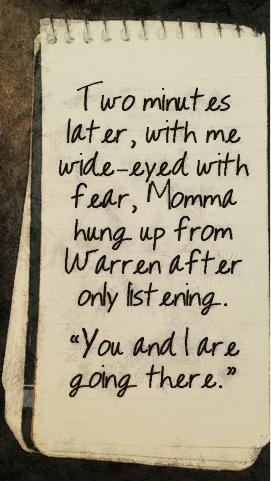 Two minutes
later, with me
wide-eyed with
fear, Momma
hung up from
Warren after
only listening.
"You and I are
going there."